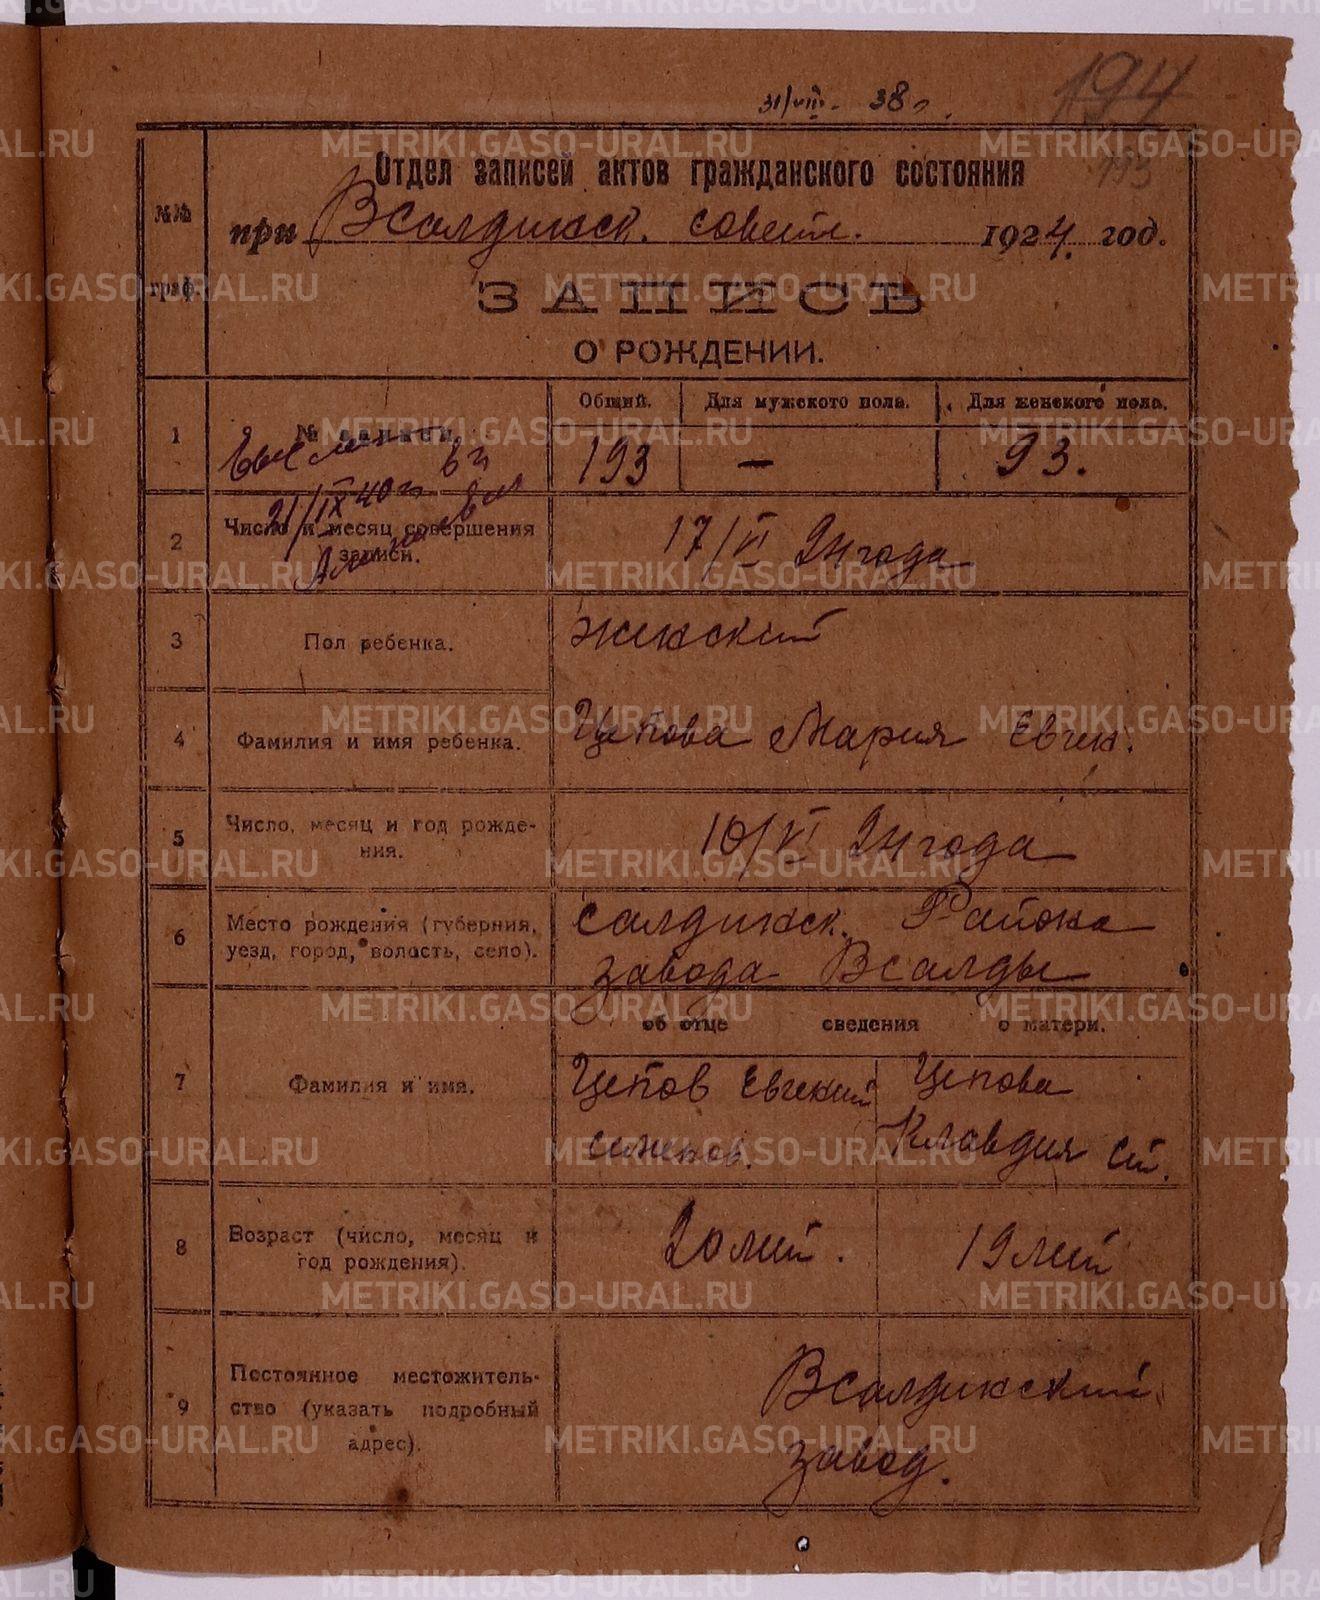 31/VIII. 38 г.
194
193
Отдел записей актов гражданского состояния
№№ граф.
при ВСалдинск. совет. 1924 год.
ЗАПИСЬ
О РОЖДЕНИИ.
Общий. Для мужского пола. Для женского пола.
1 № записи 193 — 93.
21/IX 40 г.
2 Число и месяц совершения записи. 17/VI 24 года
3 Пол ребенка. женский
4 Фамилия и имя ребенка. Цепова Мария Евген.
5 Число, месяц и год рожде-
ния. 10/VI 24 года
6 Место рождения (губерния, Салдинск. Района
уезд, город, волость, село). завода ВСалды
об отце сведения о матери.
7 Фамилия и имя. Цепов Евгений Цепова
Клавдия
8 Возраст (число, месяц и
год рождения). 20 лет. 19 лет
9 Постоянное местожитель-
ство (указать подробный
адрес). ВСалдинский
завод.
METRIKI.GASO-URAL.RU